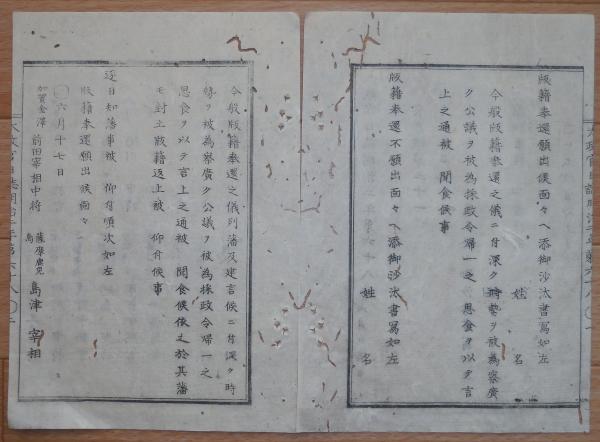 版籍奉還願出候面々ヘ添御沙汰書寫如左
姓 名
今般版籍奉還之儀ニ付深ク時勢ヲ被為察廣
ク公議ヲ被為採政令帰一之 思食ヲ以テ言
上之通被 聞食候事
版籍奉還不願出面々ヘ添御沙汰書寫如左
姓 名
今般版籍奉還之儀列藩及建言候ニ付深ク時
勢ヲ被為察廣ク公議ヲ被為採政令帰一之
思食ヲ以テ言上之通被 聞食候依之於其藩
モ封土版籍返上被 仰付候事
逐日知藩事被 仰付順次如左
版籍奉還願出候面々
〇六月十七日
加賀金澤 前田宰相中将
薩摩鹿児島 島津 宰相